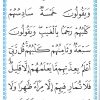 وَيَقُولُونَ خَمْسَةٌ سَادِسُهُمْ
كَلْبُهُمْ رَجْمًا بِالْغَيْبِ وَيَقُولُونَ
سَبْعَةٌ وَثَامِنُهُمْ كَلْبُهُمْ قُل رَّبِّي
أَعْلَمُ بِعِدَّتِهِم مَّا يَعْلَمُهُمْ إِلَّا قَلِيلٌ فَلَا